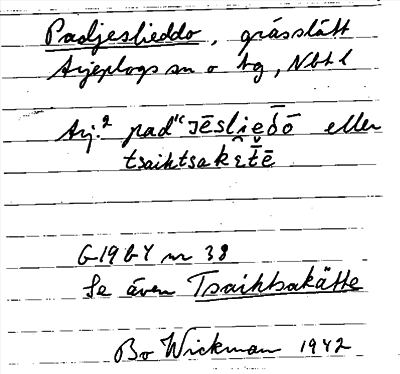 Padjeslieddo, grässlätt
Arjeplogs sn o tg, Nbt l
Arj.² pad"ᴣēsli̯eδ̄ō eller
tsaihtsakɛ̮t̄ē
G19 b Y nr 38
Se även Tsaihtsakätte
Bo Wickman 1942